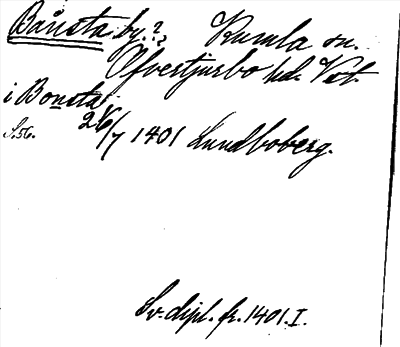 Bånsta by.?, Kumla sn.
Öfvertjurbo hd. Vet.
i Bonsta
26/7 1401 Lundboberg.
Sv. dipl. fr. 1401. I.